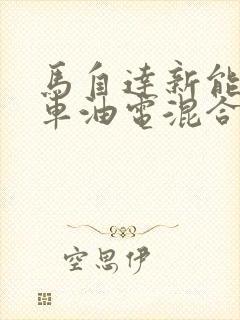 馬自達新能
車油電混合
空思伊